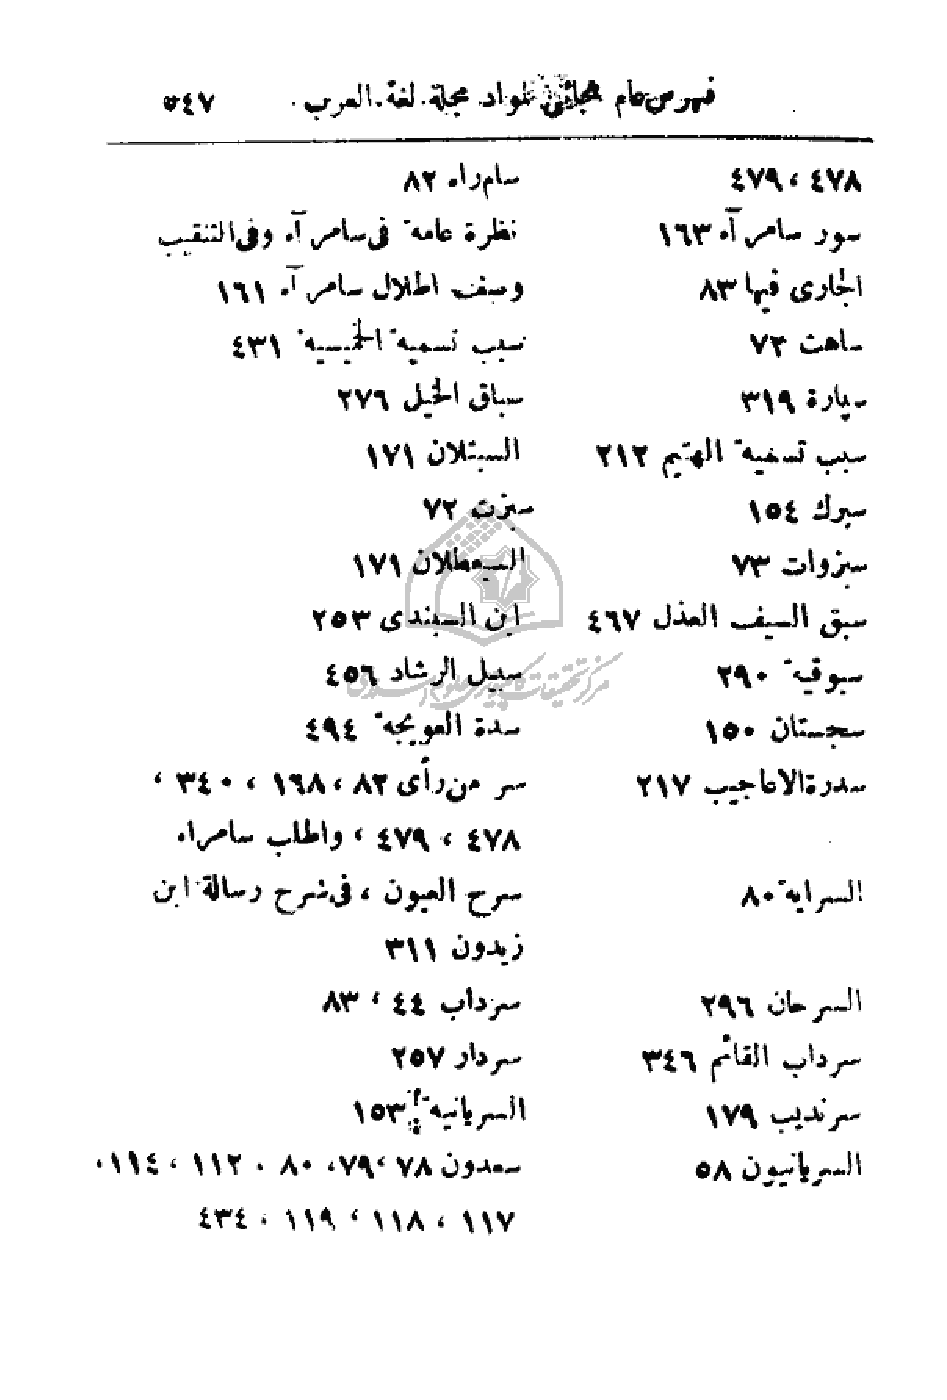 فهرس عام هجائي لمواد مجلة لغة العرب ٥٤٧
٤٧٨ ، ٤٧٩
سور سامرآء ١٦٣
الجارى فيها ٨٣
ساهت ٧٣
سيارة ٣١٩
سبب تسمية الهتيم ٢١٢
سبرك ١٥٤
سبزوات ٧٣
سبق السيف العذل ٤٦٧
سبوقية ٢٩٠
سجستان ١٥٠
سدرة الاعاجيب ٢١٧
السراية ٨٠
السرحان ٢٩٦
سرداب القائم ٣٤٦
سرنديب ١٧٩
السريانيون ٥٨
سام راه ٨٢
نظرة عامة فى سامرآء وفى التنقيب
وصف اطلال سامرآء ١٦١
سبب تسمية الخميسية ٤٣١
سباق الخيل ٢٧٦
السبتلان ١٧١
سبزت ٧٢
السبعطلان ١٧١
ابن السبندى ٢٥٣
سبيل الرشاد ٤٥٦
سدة العويجة ٤٩٤
سر من رأى ٨٢ ، ١٦٨ ، ٣٤٠ ،
٤٧٨ ، ٤٧٩ ، واطلب سامراء
سرح العيون ، فى شرح رسالة ابن
زيدون ٣١١
سرداب ٤٤ ، ٨٣
سردار ٢٥٧
السريانية ١٥٣
سعدون ٧٨ ،٧٩، ٨٠ ، ١١٢ ، ١١٤،
١١٧ ، ١١٨ ، ١١٩ ، ٤٣٤
مركز تحقيقات كامپيوترى علوم اسلامى